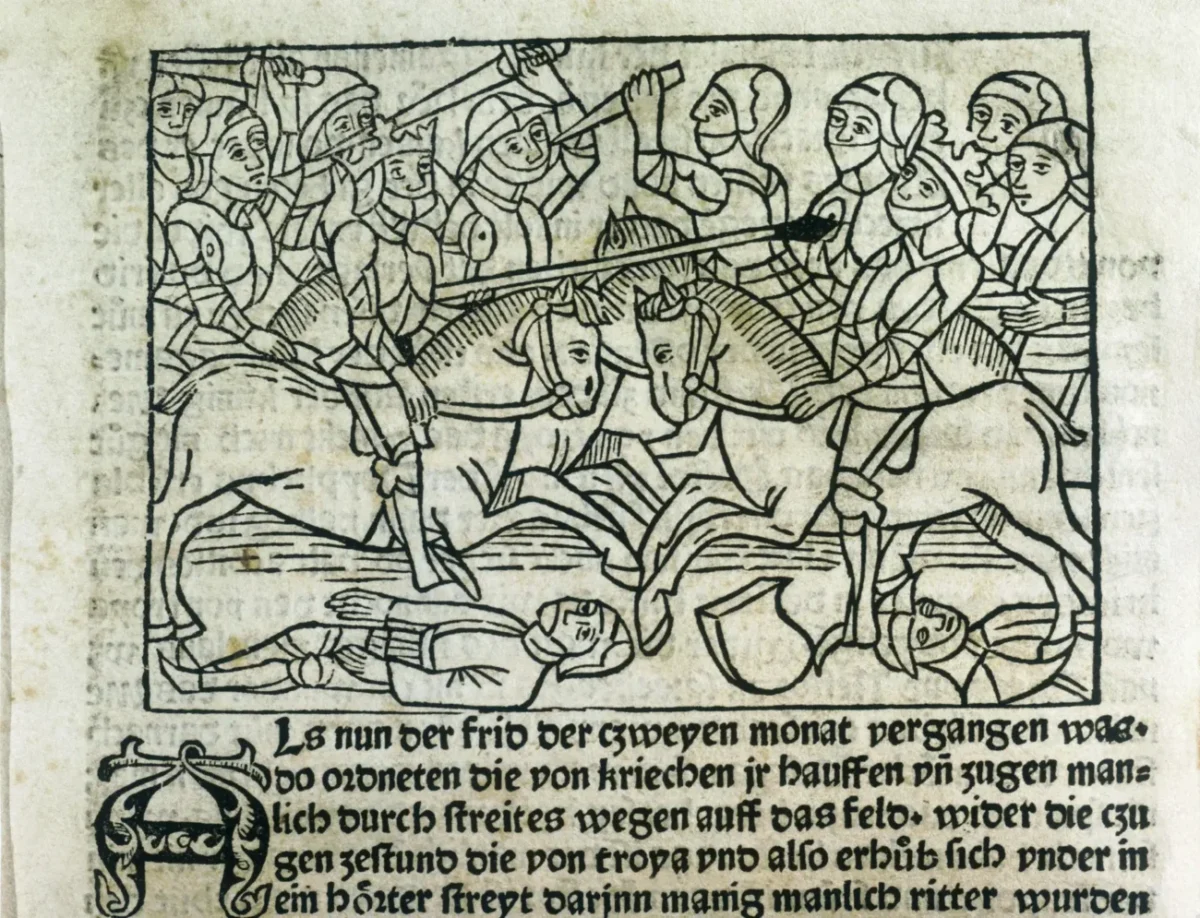 ALs nun der frid der czweyen monat vergangen was.
do ordneten die von kriechen jr hauffen vñ zugen man⸗
lich durch streites wegen auff das feld. wider die czu
gen zestund die von troya vnd also erhůb sich vnder in
ein hoͤrter streyt darjnn manig manlich ritter wurden